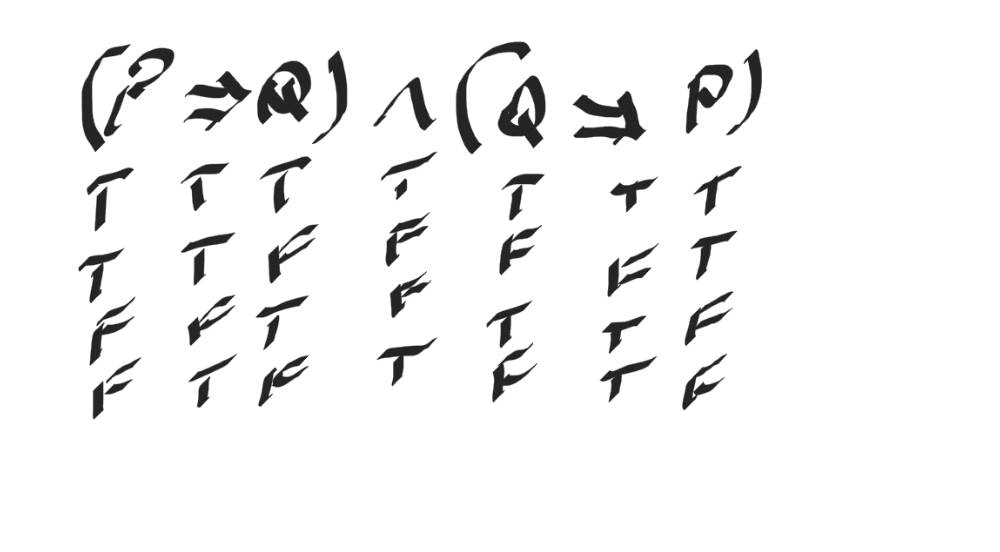 (P ⇒ Q) ∧ (Q ⇒ P)
T T T T T T T
T T F F F F T
F F T F T T F
F T F T F T F